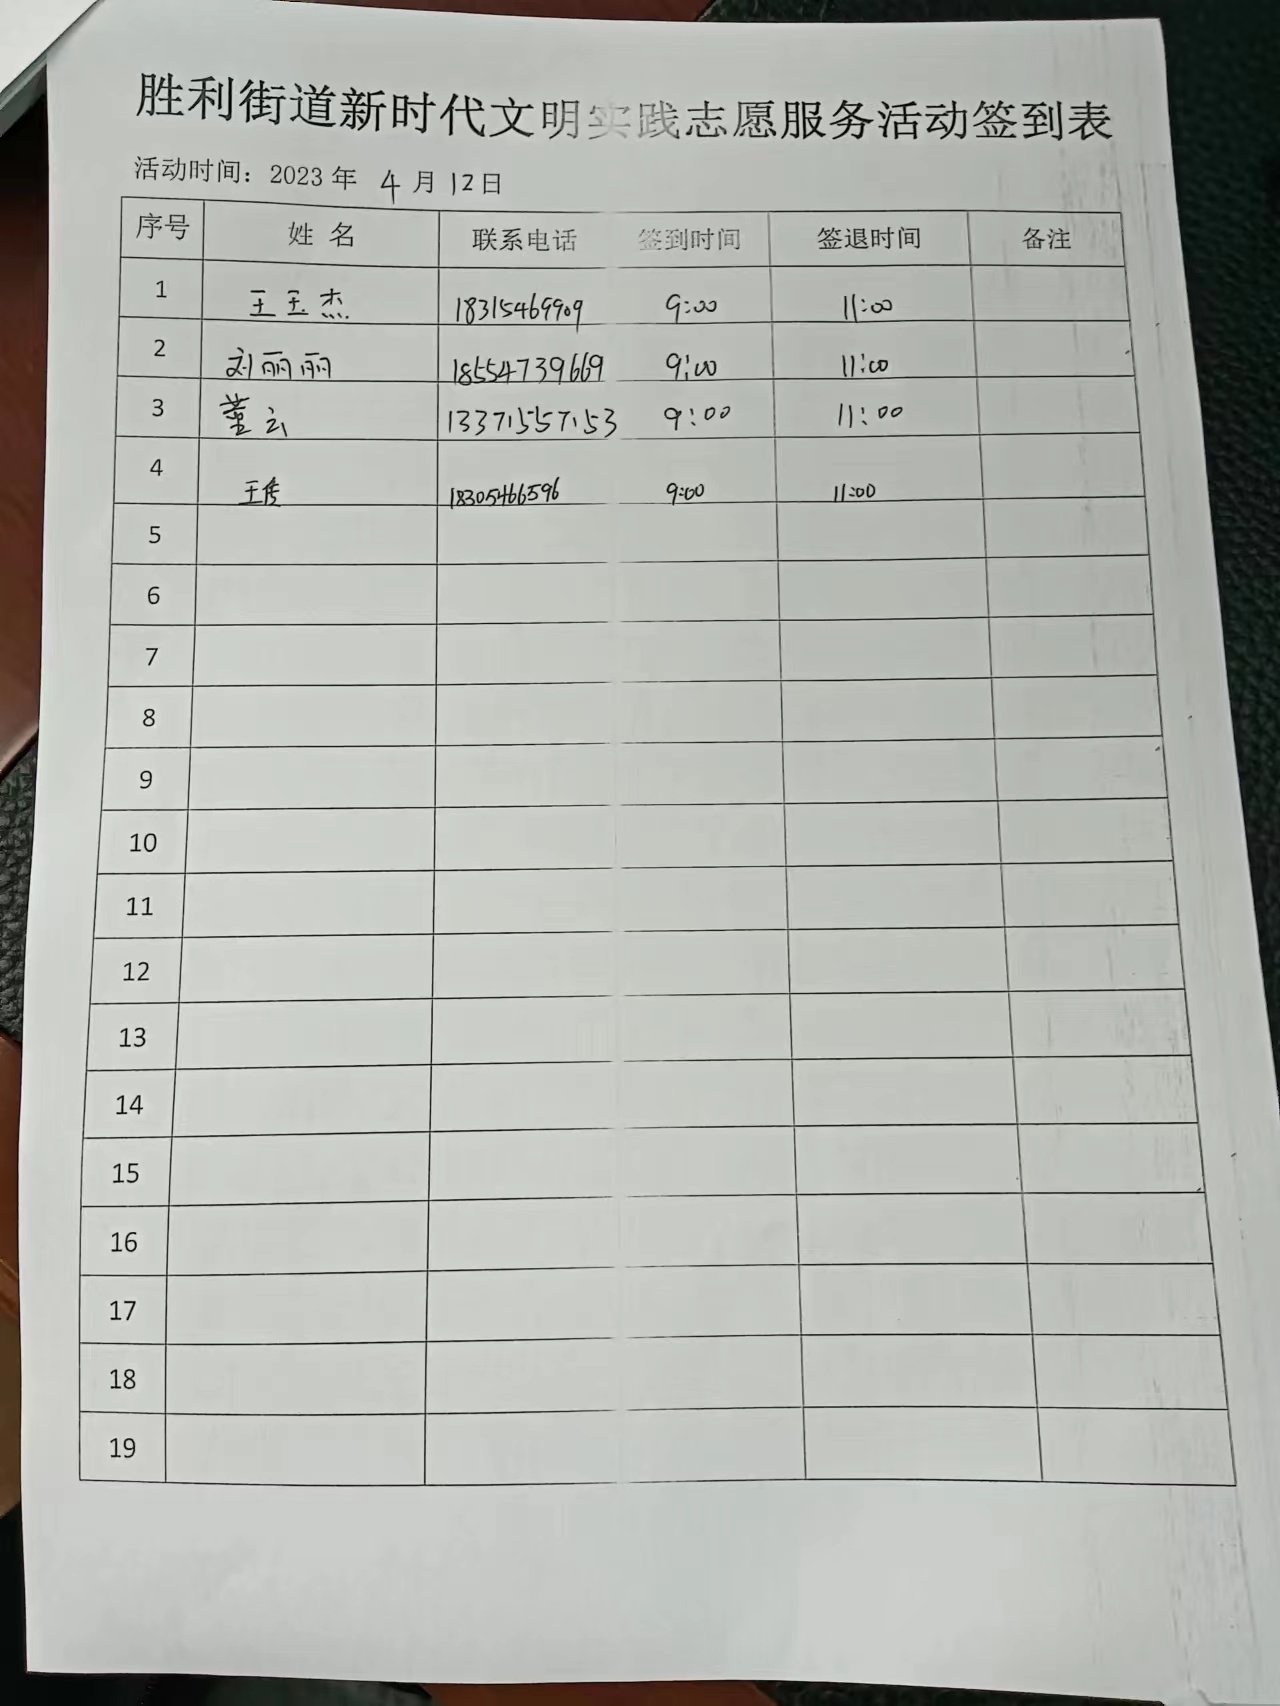 胜利街道新时代文明实践志愿服务活动签到表
活动时间：2023 年 4 月 12 日
序号 姓 名 联系电话 签到时间 签退时间 备注
1 王玉杰 18315469909 9:00 11:00
2 刘丽丽 18554739669 9:00 11:00
3 董云 13371557153 9:00 11:00
4 王隽 18305466596 9:00 11:00
5
6
7
8
9
10
11
12
13
14
15
16
17
18
19